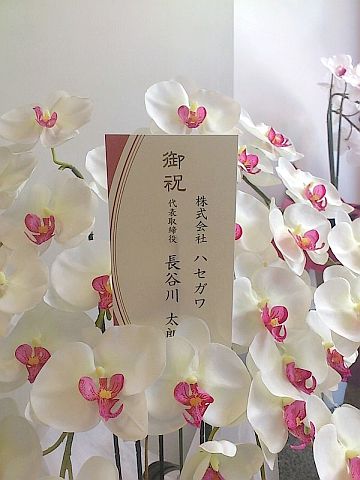 御祝
株式会社 ハセガワ
代表取締役 長谷川 太郎